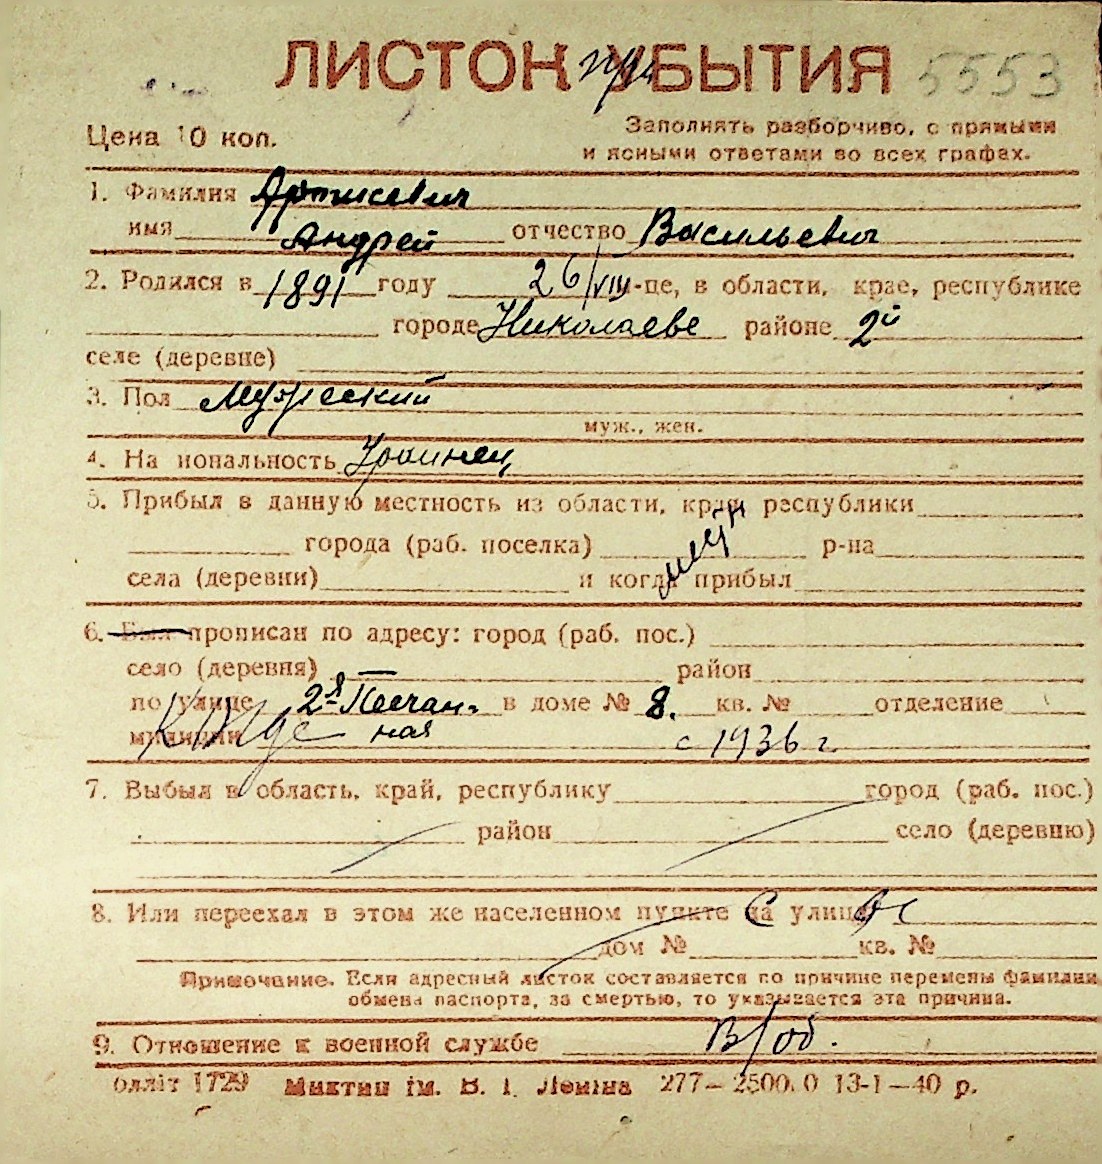 ЛИСТОК УБЫТИЯ 5553
Цена 10 коп.
Заполнять разборчиво, с прямыми
и ясными ответами во всех графах.
1. Фамилия
имя Андрей отчество Васильевич
2. Родился в 1891 году 26/VIII-це, в области, крае, республике
городе Николаеве районе 2й
селе (деревне)
3. Пол Мужеский
муж., жен.
4. На иональность Украинец
5. Прибыл в данную местность из области, края республики
города (раб. поселка) р-на
села (деревни) и когда прибыл
6. Был прописан по адресу: город (раб. пос.)
село (деревня) район
по улице 2я Песчан- в доме № 8. кв. № отделение
милиции ная с 1936 г.
7. Выбыл в область, край, республику город (раб. пос.)
район село (деревню)
8. Или переехал в этом же населенном пункте на улицу
дом № кв. №
Примечание. Если адресный листок составляется по причине перемены фамилии
обмена паспорта, за смертью, то указывается эта причина.
9. Отношение к военной службе В/об.
1729 ім. В. І. Леніна 277—2500.0 13-1—40 р.